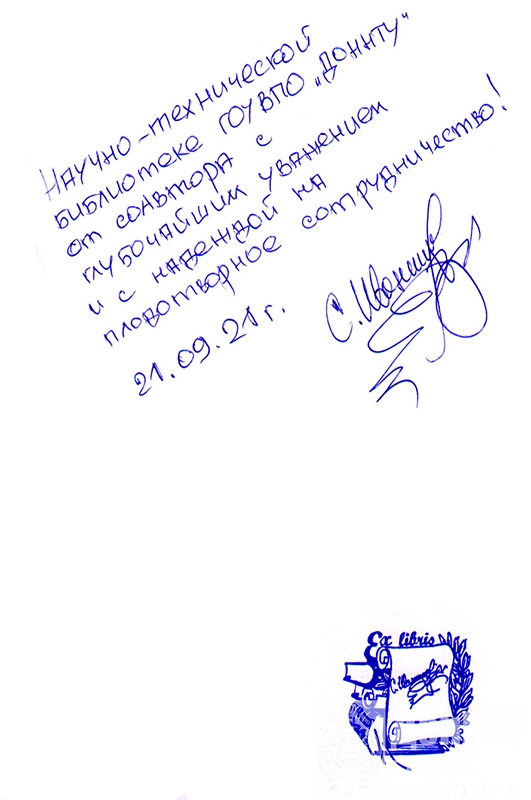 Научно-технической
библиотеке ГОУВПО „ДОННТУ"
от соавтора с
глубочайшим уважением
и с надеждой на
плодотворное сотрудничество!
21.09.21 г.
С.
Ex libris